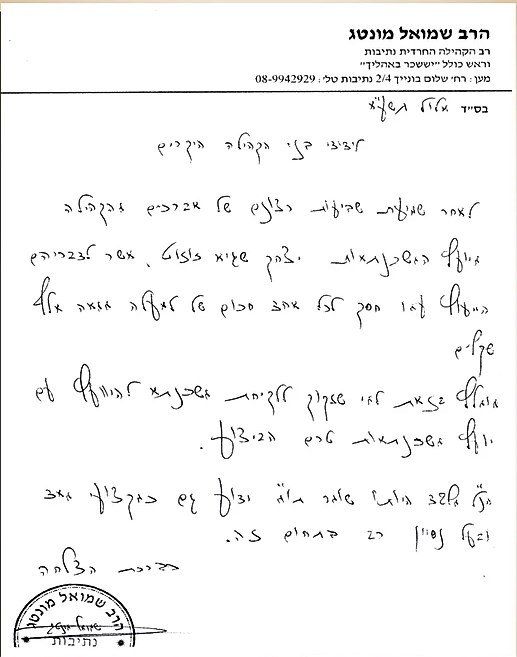 הרב שמואל מונטג
רב הקהילה החרדית נתיבות
וראש כולל "יששכר באהליך"
מען: רח' שלום בונייך 2/4 נתיבות טל': 08-9942929
בס"ד אלול תשע"א
לידידי בני הקהילה היקרים
לאחר שמיעת שביעות רצונם של אברכים מהקהילה
מיועץ המשכנתאות יצחק שגיא אשר לדבריהם
הייעוץ עמו חסך לכל אחד סכום של למעלה ממאה אלף
שקלים
אמליץ בזאת למי שזקוק ללקיחת משכנתא להיוועץ עם
יועץ משכנתאות טרם הביצוע.
הנ"ל מלבד היותו שומר תו"מ ידוע גם כמקצועי מאד
ובעל נסיון רב בתחום זה.
בברכת הצלחה
הרב שמואל מונטג
נתיבות